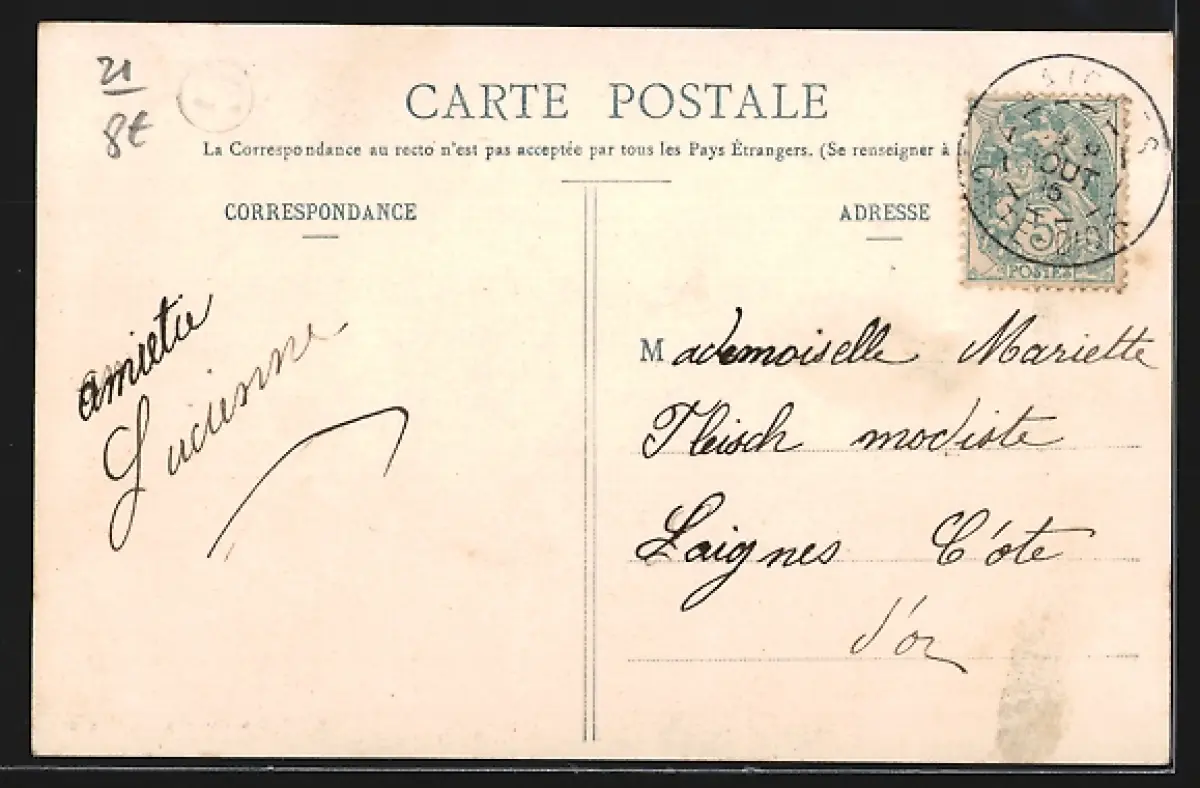 21
8€
CARTE POSTALE
La Correspondance au recto n'est pas acceptée par tous les Pays Étrangers. (Se renseigner à
CORRESPONDANCE
ADRESSE
5
POSTES
amietie
Lucienne
Mademoiselle Mariette
Fleisch modiste
Laignes Côte
d'or